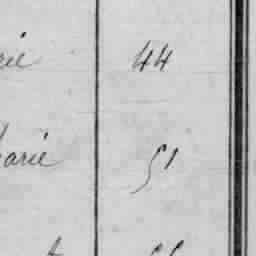 rie 44
arie 51